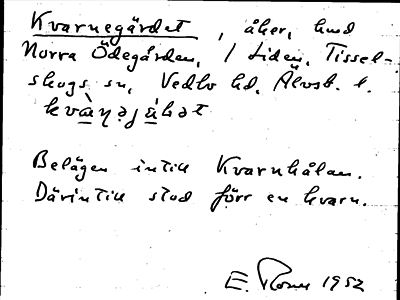 Kvarnegärdet, åker, hmd
Norra Ödegården, 1 Liden, Tissel-
skogs sn, Vedbo hd, Älvsb. l.
Belägen intill Kvarnhålan.
Därintill stod förr en kvarn.
E. 1952